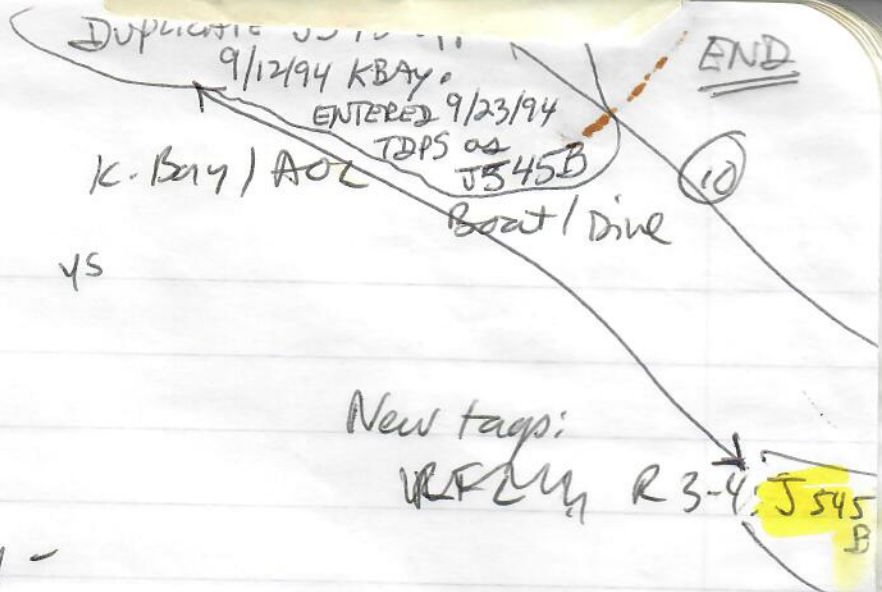 Duplicate
END
9/12/94 KBAY.
ENTERED 9/23/94
TDPS as
J545B
10
K. Bay / AOL
Boat / Dive
YS
New tags:
R 3-4: J545
B